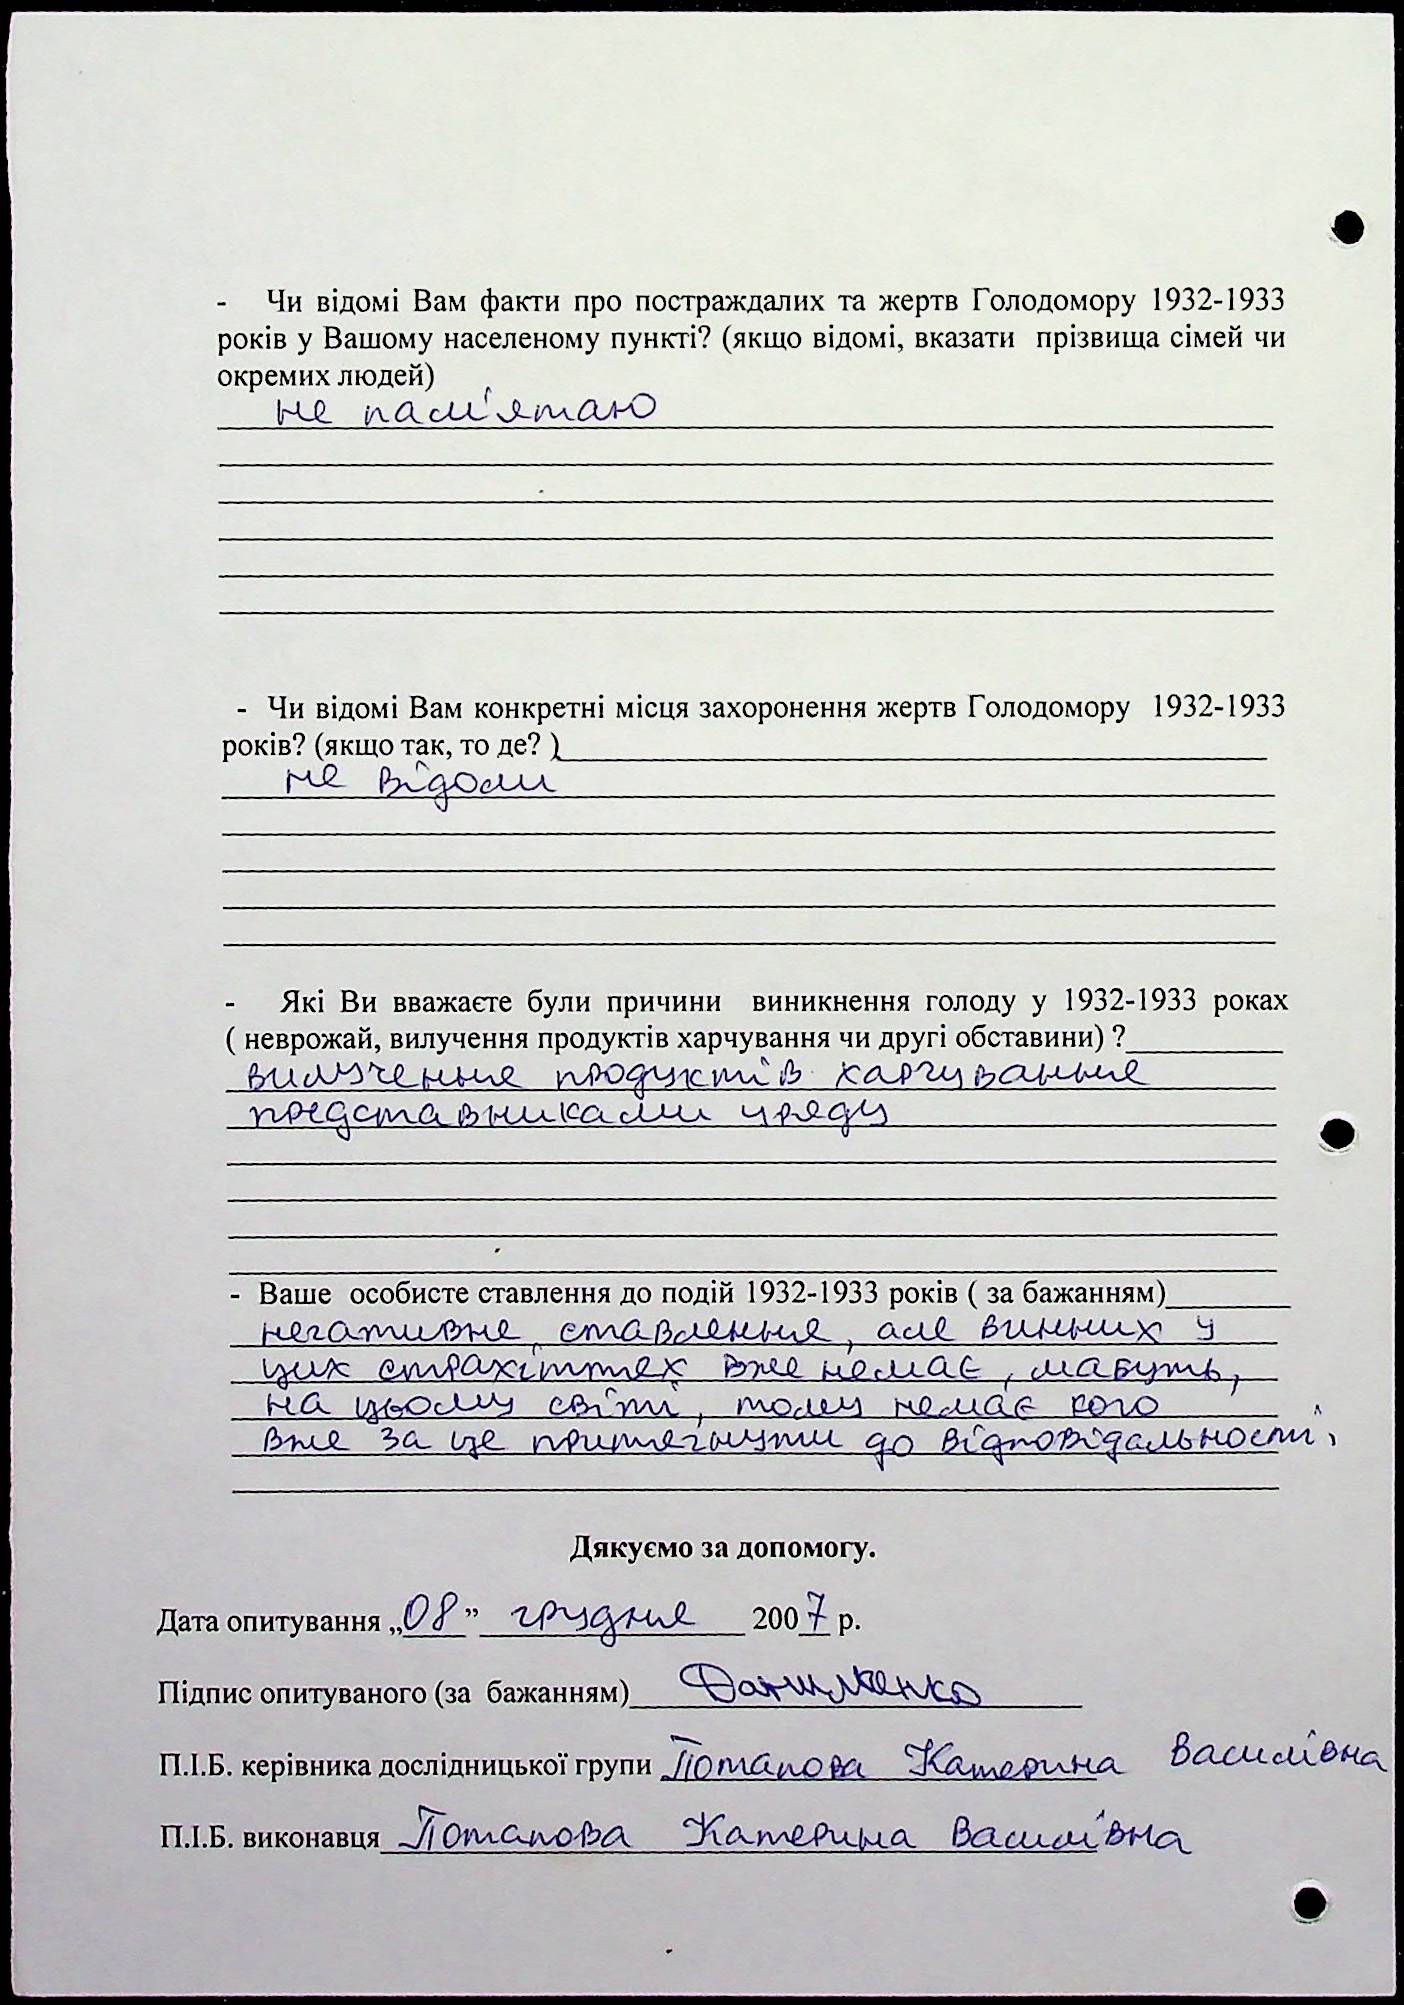 - Чи відомі Вам факти про постраждалих та жертв Голодомору 1932-1933
років у Вашому населеному пункті? (якщо відомі, вказати прізвища сімей чи
окремих людей)
не пам'ятаю
- Чи відомі Вам конкретні місця захоронення жертв Голодомору 1932-1933
років? (якщо так, то де? )
не відомі
- Які Ви вважаєте були причини виникнення голоду у 1932-1933 роках
( неврожай, вилучення продуктів харчування чи другі обставини) ?
вилучення продуктів харчування
представниками уряду
- Ваше особисте ставлення до подій 1932-1933 років ( за бажанням)
негативне ставлення, але винних у
цих страхіттях вже немає, мабуть,
на цьому світі, тому немає кого
вже за це притягнути до відповідальності.
Дякуємо за допомогу.
Дата опитування „08” грудня 2007 р.
Підпис опитуваного (за бажанням)
П.І.Б. керівника дослідницької групи Потапова Катерина Василівна
П.І.Б. виконавця Потапова Катерина Василівна